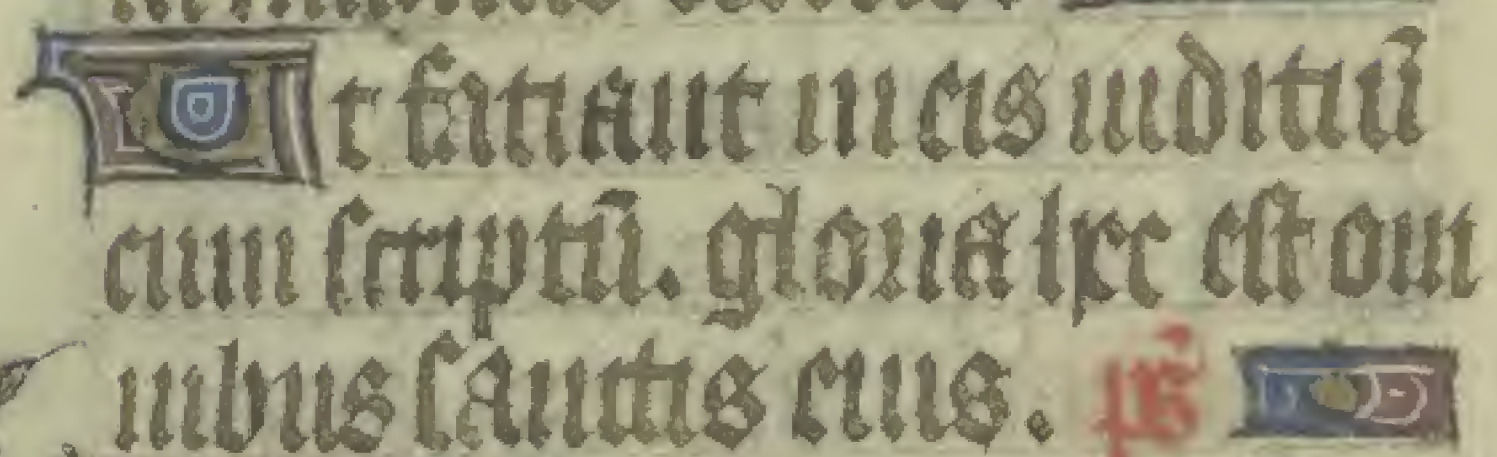 Ut faciant in eis iudiciū
cium scriptū. gloria hec est om
nibus sanctis eius. ps̄